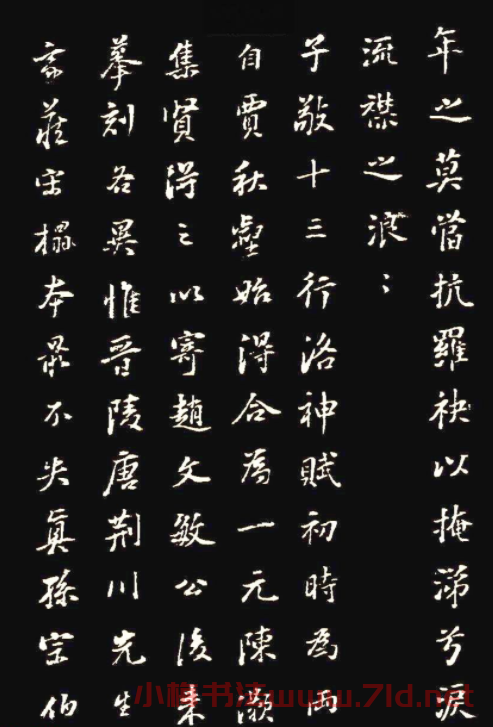 年之莫當抗羅袂以掩涕兮淚
流襟之浪〻
子敬十三行洛神賦初時為兩
自賈秋壑始得合為一元陳灝
集賢得之以寄趙文敏公後來
摹刻各異惟晉陵唐荆川先生
家藏宋榻本最不失真孫宗伯
小楷书法www.7ld.net